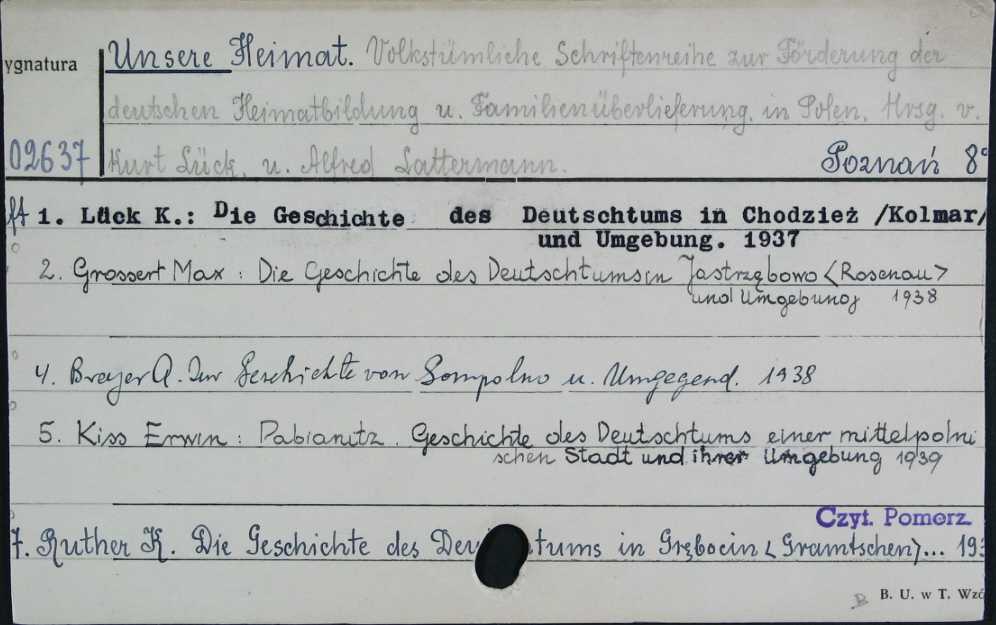 ygnatura
Unsere Heimat. Volkstümliche Schriftenreihe zur Förderung der
deutschen Heimatbildung u. Familienüberlieferung in Polen. Hrsg. v.
02637 Kurt Lück u. Alfred Lattermann. Poznań 8°
1. Lück K.: Die Geschichte des Deutschtums in Chodzież /Kolmar/
und Umgebung. 1937
2. Grossert Max: Die Geschichte des Deutschtums in Jastrzębowo <Rosenau>
und Umgebung 1938
4. Breyer A. Zur Geschichte von Sompolno u. Umgegend. 1938
5. Kiss Erwin: Pabianitz. Geschichte des Deutschtums einer mittelpolni
schen Stadt und ihrer Umgebung 1939
Czyt. Pomorz.
7. Ruther K. Die Geschichte des tums in Grębocin <Gramtschen>... 193
B. U. w T. Wzó